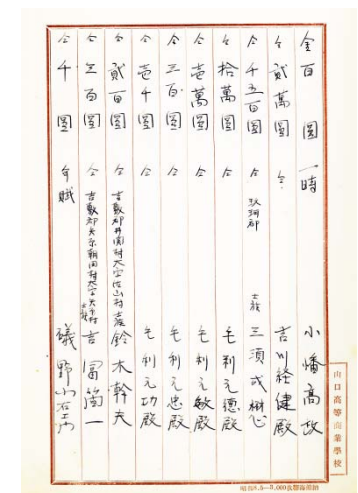 金百圓 一時 小幡高政
仝貳萬圓 仝 吉川経健殿
仝千五百圓 仝 玖珂郡 士族 三須成樹
仝拾萬圓 仝 毛利元德殿
仝壱萬圓 仝 毛利元敏殿
仝三百圓 仝 毛利元忠殿
仝壱千圓 仝 毛利元功殿
仝貳百圓 仝 吉敷郡井関村大字佐山村士族 鈴木幹夫
仝三百圓 仝 吉敷郡 士族 吉冨簡一
仝千圓 年賦 磯野小右エ門
山口高等商業學校